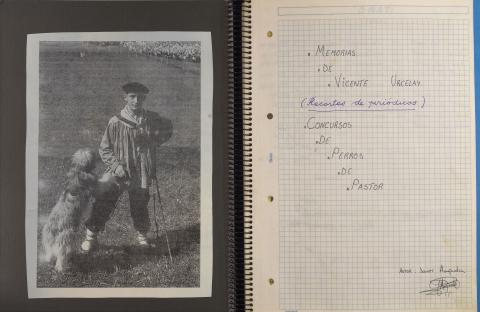 . MEMORIAS
. DE
. VICENTE URCELAY
(Recortes de periódicos)
. CONCURSOS
. DE
. PERROS
. DE
. PASTOR
AUTOR: